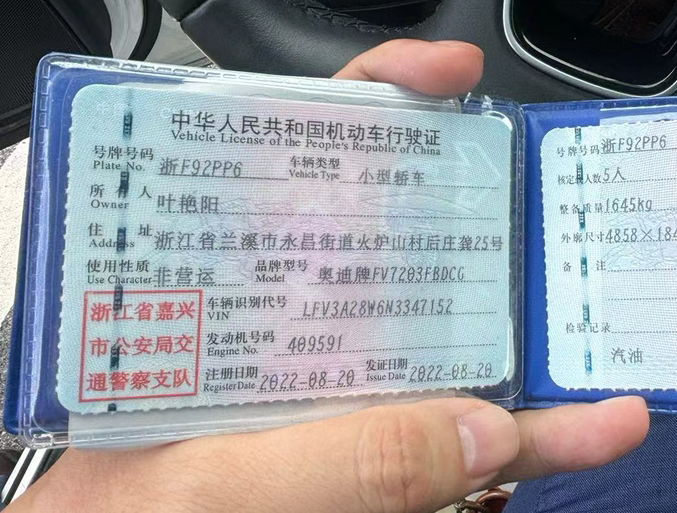 中华人民共和国机动车行驶证
Vehicle License of the People's Republic of China
号牌号码 浙F92PP6 车辆类型 小型轿车
Plate No. Vehicle Type
所有人 叶艳阳
Owner
住址 浙江省兰溪市永昌街道火炉山村后庄龚25号
Address
使用性质 非营运 品牌型号 奥迪牌FV7203FBDCG
Use Character Model
浙江省嘉兴
市公安局交
通警察支队
车辆识别代号 LFV3A28W6N3347152
VIN
发动机号码 409591
Engine No.
注册日期 2022-08-20 发证日期 2022-08-20
Register Date Issue Date
号牌号码 浙F92PP6
核定载人数 5人
整备质量 1645kg
外廓尺寸 4858×184
备注
检验记录
汽油